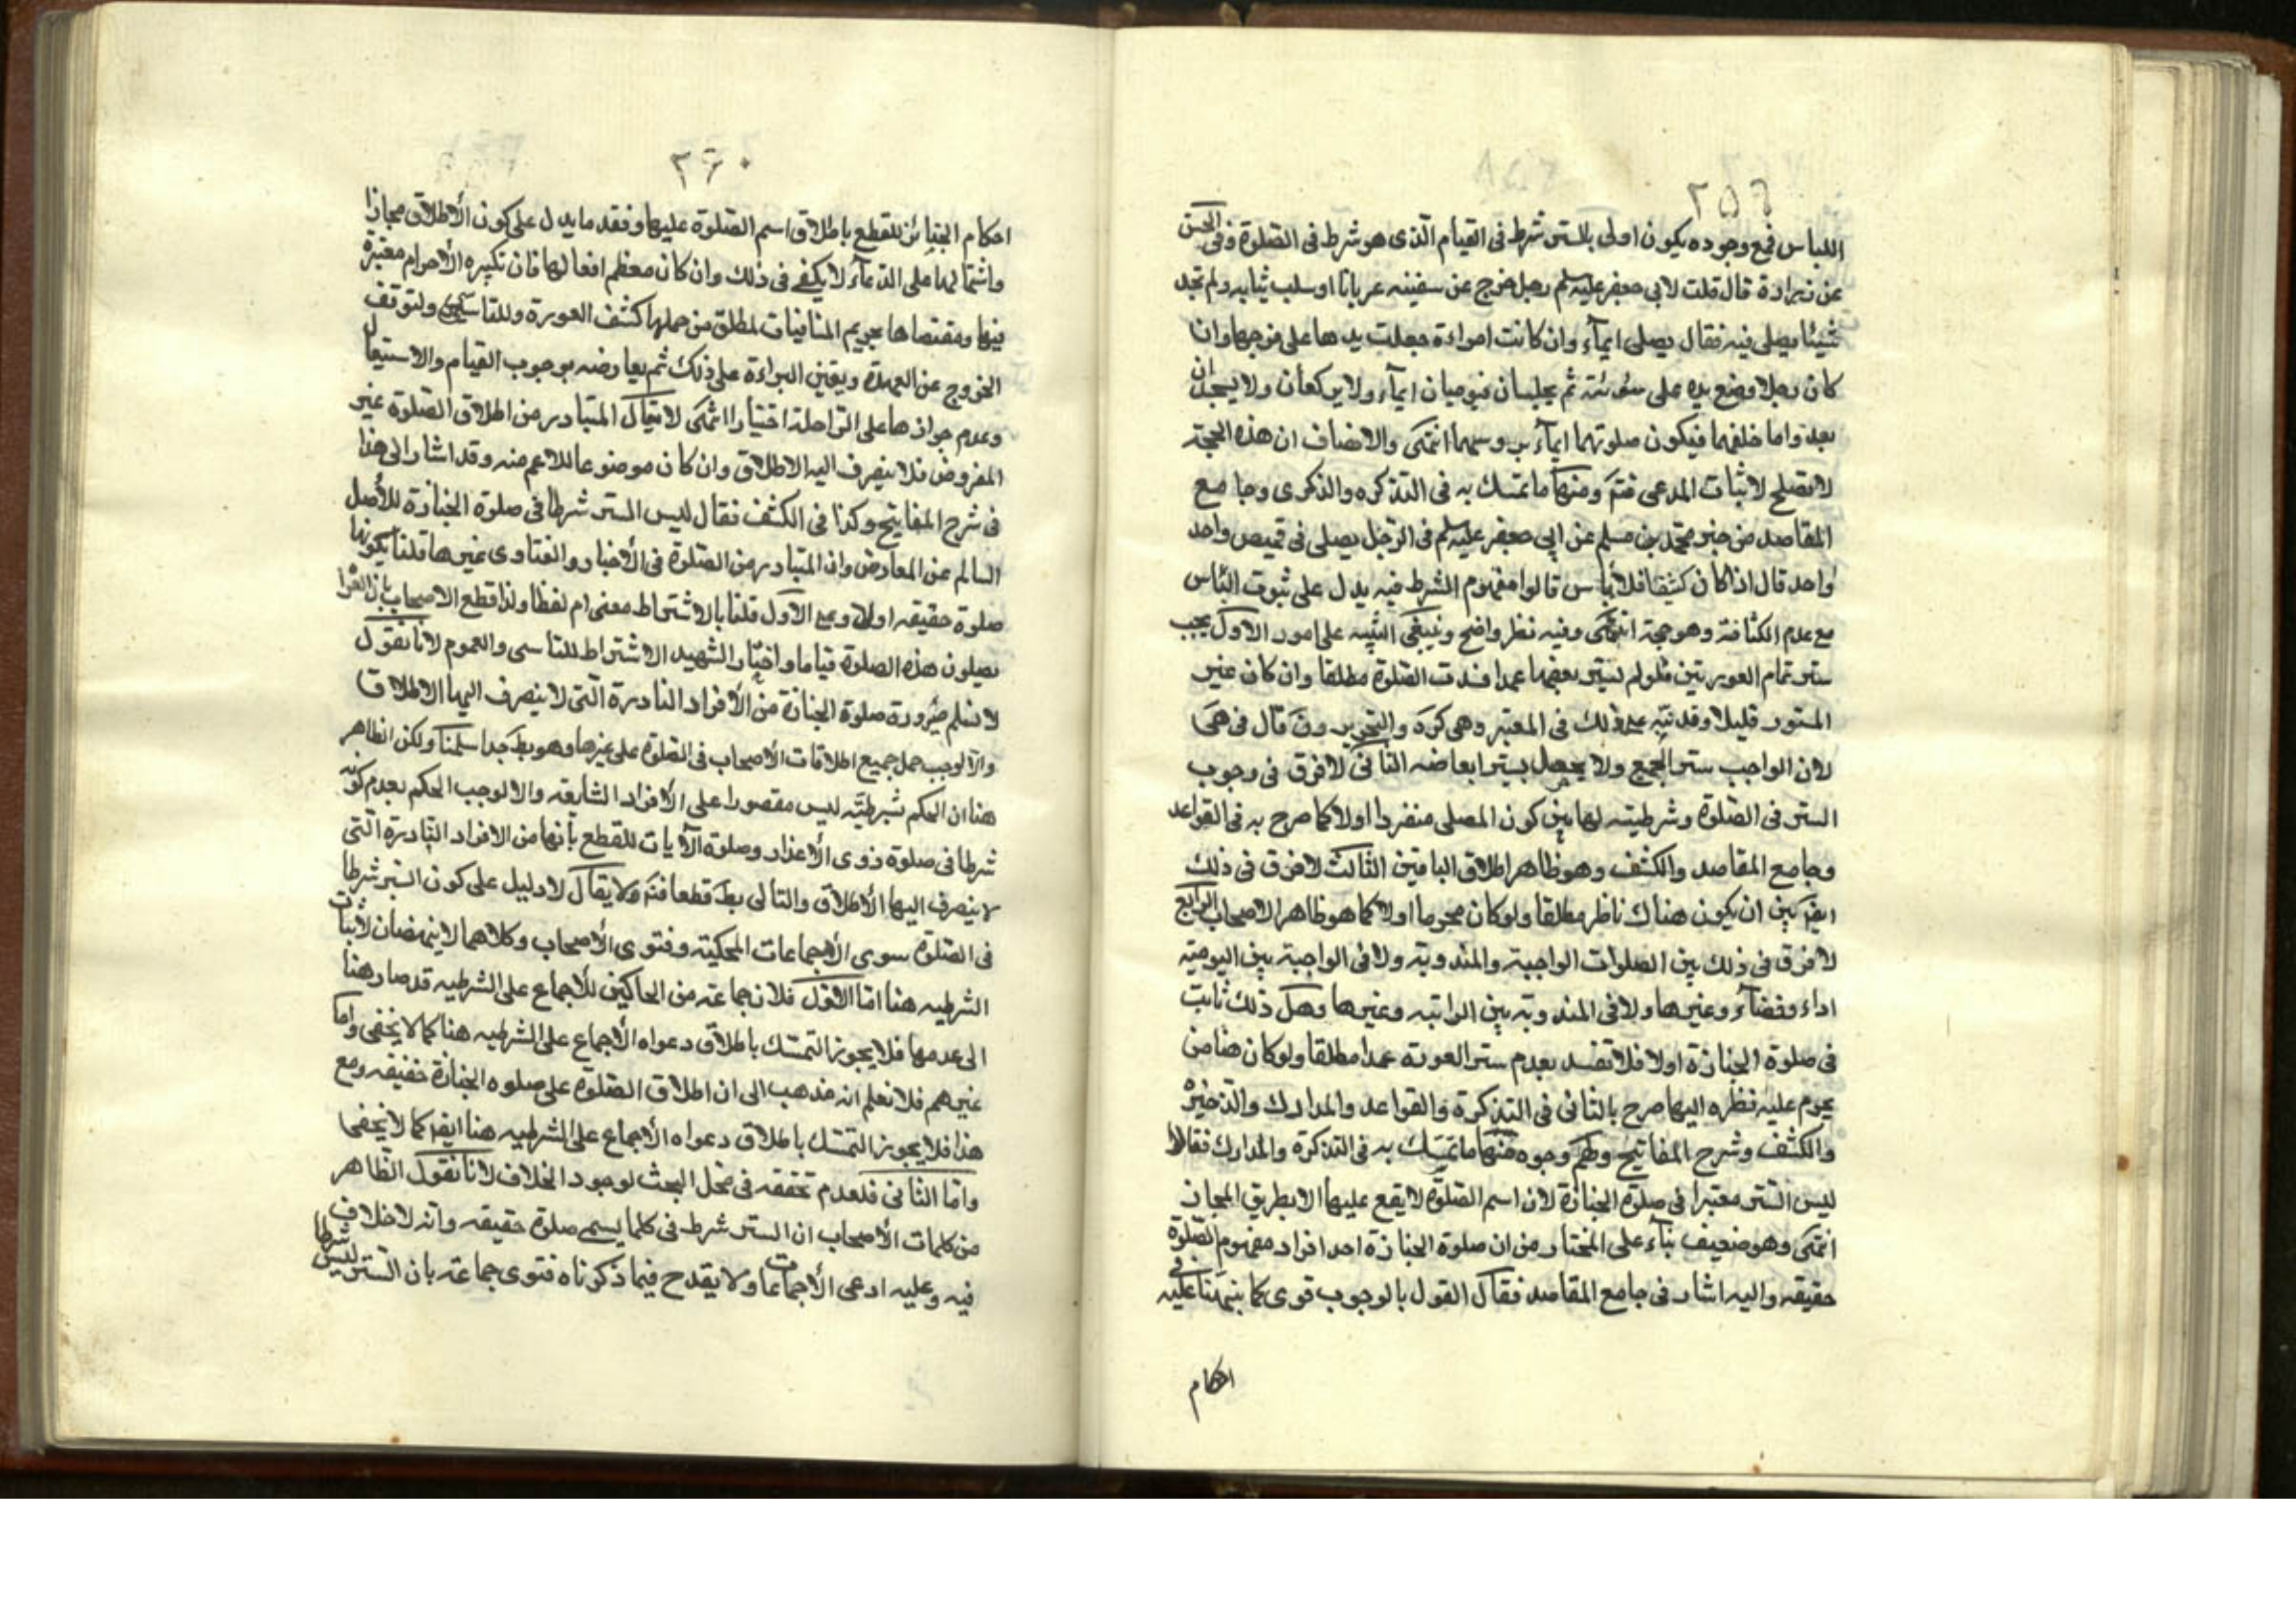 ٢٥٩
اللباس فمع وجوده يكون اولى بالستر شرط فى القيام الذى هو شرط فى الصلوة وفى الحسن
عن زرارة قال قلت لابى جعفر عليه سلم رجل خرج عن سفينه عريانا او سلب ثيابه ولم تجد
شيئا يصلى فيه فقال يصلى ايمآء وان كانت امراءة جعلت يدها على فرجها وان
كان رجلا وضع يده على سوئته ثم يجلسان فيوميان ايمآء ولا يركعان ولا يسجدان
بعد واما خلفهما فيكون صلوتهما ايمآء بروسهما انتهى والانصاف ان هذه الحجة
لا تصلح لاثبات المدعى فتم ومنها ما تمسك به فى التذكره والذكرى وجامع
المقاصد من خبر محمد بن مسلم عن ابى جعفر عليه سلم فى الرجل يصلى فى قميص واحد
واحد قال اذا كان كثيفا فلا بأس قالوا مفهوم الشرط فيه يدل على ثبوت البأس
مع عدم الكثافة وهو حجة انتهى وفيه نظر واضح وينبغى التنبيه على امور الاول يجب
ستر تمام العورتين فلو لم يستر بعضها عمدا فسدت الصلوة مطلقا وان كان غير
المستور قليلا وقد نبه على ذلك فى المعتبر وهى كره والتحرير ون قال فى هى
لان الواجب ستر الجميع ولا يحصل بستر ابعاضه الثانى لا فرق فى وجوب
الستر فى الصلوة وشرطيته لها بين كون المصلى منفردا اولا كما صرح به فى القواعد
وجامع المقاصد والكشف وهو ظاهر اطلاق الباقين الثالث لا فرق فى ذلك
ايضا بين ان يكون هناك ناظر مطلقا ولو كان محرما اولا كما هو ظاهر الاصحاب الرابع
لا فرق فى ذلك بين الصلوات الواجبة والمندوبة ولا فى الواجبة بين اليومية
اداء وقضآء وغيرها ولا فى المندوبة بين الراتبه وغيرها وهل ذلك ثابت
فى صلوة الجنازة اولا فلا تفسد بعدم ستر العورة عمدا مطلقا ولو كان هنا من
يحرم عليه نظره اليها صرح بالثانى فى التذكرة والقواعد والمدارك والذخيرة
والكشف وشرح المفاتيح ولهم وجوه منها ما تمسك به فى التذكرة والمدارك فقالا
ليس الستر معتبرا فى صلوة الجنازة لان اسم الصلوة لا يقع عليها الا بطريق المجاز
انتهى وهو ضعيف بنآء على المختار من ان صلوة الجنازة احد افراد مفهوم الصلوة
حقيقه واليه اشار فى جامع المقاصد فقال القول بالوجوب قوى كما بنهنا عليه فى
احكام
٢٦٠
احكام الجنائز للقطع باطلاق اسم الصلوة عليها وفقد ما يدل على كون الاطلاق مجازا
واشتمالها على الدعآء لا يكفى فى ذلك وان كان معظم افعالها فان تكبيره الاحرام معتبرة
فيها ومقتضاها تحريم المنافيات لمطلق من جملها كشف العورة وللتاسى ولتوقف
الخروج عن العهدة ويقين البراءة على ذلك ثم يعارضه بوجوب القيام والاستقبال
وعدم جوازها على الراحلة اختيارا انتهى لا يقال المتبادر من اطلاق الصلوة غير
المفروض فلا ينصرف اليه الاطلاق وان كان موضوعا للاعم منه وقد اشار الى هذا
فى شرح المفاتيح وكذا فى الكشف فقال ليس الستر شرطا فى صلوة الجنازة للأصل
السالم عن المعارض وان المتبادر من الصلوة فى الأخبار والفتاوى غيرها قلنا بكونها
صلوة حقيقه اولا وعلى الاول قلنا بالاشتراط معنى ام لفظا ولذا قطع الاصحاب بان العراة
يصلون هذه الصلوة قياما واختار الشهيد الاشتراط للتاسى والعموم لانا نقول
لا نسلم ضرورة صلوة الجنازة من الأفراد النادرة التى لا ينصرف اليها الاطلاق
والا لوجب حمل جميع اطلاقات الأصحاب فى الصلوة على غيرها وهو بط جدا سلمنا ولكن الظاهر
هنا ان الحكم شرطيته ليس مقصورا على الأفراد الشايعه والا لوجب الحكم بعدم كونه
شرطا فى صلوة ذوى الأعذار وصلوة الآيات للقطع بأنها من الافراد النادرة التى
لا ينصرف اليها الأطلاق والتالى بط قطعا فتم ولا يقال لا دليل على كون الستر شرطا
فى الصلوة سوى الأجماعات المحكية وفتوى الأصحاب وكلاهما لا ينهضان لأثبات
الشرطيه هنا اما الاول فلان جماعة من الحاكين للأجماع على الشرطيه قد صار هنا
الى عدمها فلا يجوز التمسك باطلاق دعواه الأجماع على الشرطيه هنا كما لا يخفى واما
غيرهم فلا نعلم انه مذهب الى ان اطلاق الصلوة على صلوه الجنازة حقيقه ومع
هذا فلا يجوز التمسك باطلاق دعواه الأجماع على الشرطيه هنا ايضا كما لا يخفى
واما الثانى فلعدم تحققه فى محل البحث لوجود الخلاف لانا نقول الظاهر
من كلمات الأصحاب ان الستر شرط فى كلما يسمى صلوة حقيقه وانه لا خلاف
فيه وعليه ادعى الأجماعات ولا يقدح فيما ذكرناه فتوى جماعة بان الستر ليس شرطا